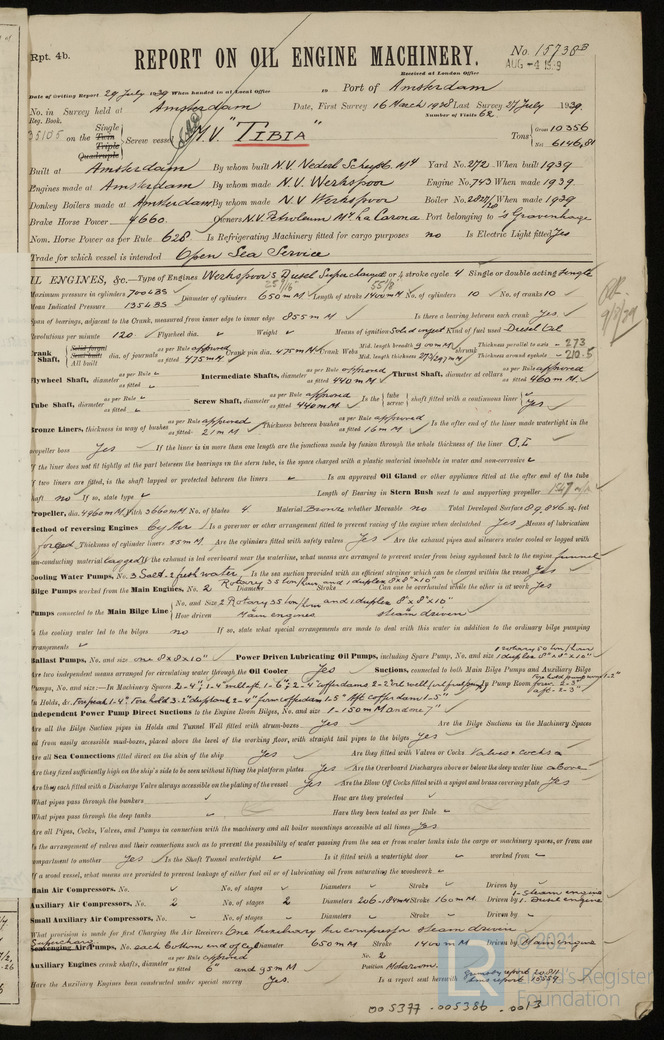 Rpt. 4b.
REPORT ON OIL ENGINE MACHINERY.
No. 15738B
Received at London Office
AUG -4 1939
Date of writing Report 29 July 1939 When handed in at Local Office 19 Port of Amsterdam
No. in Survey held at Amsterdam Date, First Survey 16 March 1938 Last Survey 27 July 1939.
Reg. Book. Number of Visits 62.
35105 on the Single Twin Triple Quadruple Screw vessel M.V. "TIBIA" Tons Gross 10356 Net 6146,81
Built at Amsterdam By whom built N.V. Nederl. Scheepsb. My Yard No. 272 When built 1939
Engines made at Amsterdam By whom made N.V. Werkspoor Engine No. 743 When made 1939.
Donkey Boilers made at Amsterdam By whom made N.V. Werkspoor Boiler No. When made 1939
Brake Horse Power 4660. Owners N.V. Petroleum My La Corona Port belonging to 's Gravenhage
Nom. Horse Power as per Rule 628. Is Refrigerating Machinery fitted for cargo purposes no Is Electric Light fitted Yes
Trade for which vessel is intended Open Sea Service
OIL ENGINES, &c.—Type of Engines Werkspoor's Diesel Supercharged 2 or 4 stroke cycle 4 Single or double acting Single
Maximum pressure in cylinders 700 LBS Diameter of cylinders 650 mM Length of stroke 1400 mM No. of cylinders 10 No. of cranks 10
Mean Indicated Pressure 135 LBS
Span of bearings, adjacent to the Crank, measured from inner edge to inner edge 855 mM Is there a bearing between each crank Yes
Revolutions per minute 120 Flywheel dia. Weight Means of ignition Solid inject Kind of fuel used Diesel Oil
Crank Shaft, Solid forged Semi built All built dia. of journals as per Rule approved as fitted 475 mM Crank pin dia. 475 mM Crank Webs Mid. length breadth 900 mM Mid. length thickness shrunk Thickness parallel to axis - 273 Thickness around eyehole - 210.5
Flywheel Shaft, diameter as per Rule as fitted Intermediate Shafts, diameter as per Rule approved as fitted 440 mM Thrust Shaft, diameter at collars as per Rule approved as fitted 460 mM.
Tube Shaft, diameter as per Rule as fitted Screw Shaft, diameter as per Rule approved as fitted 440 mM Is the tube screw shaft fitted with a continuous liner Yes
Bronze Liners, thickness in way of bushes as per Rule approved as fitted 21 mM Thickness between bushes as per Rule approved as fitted 16 mM Is the after end of the liner made watertight in the
propeller boss Yes If the liner is in more than one length are the junctions made by fusion through the whole thickness of the liner O.L
If the liner does not fit tightly at the part between the bearings in the stern tube, is the space charged with a plastic material insoluble in water and non-corrosive
If two liners are fitted, is the shaft lapped or protected between the liners Is an approved Oil Gland or other appliance fitted at the after end of the tube
shaft no If so, state type Length of Bearing in Stern Bush next to and supporting propeller
Propeller, dia. 4960 mM Pitch 3660 mM No. of blades 4. Material Bronze whether Moveable no Total Developed Surface sq. feet
Method of reversing Engines Is a governor or other arrangement fitted to prevent racing of the engine when declutched Yes Means of lubrication
forced Thickness of cylinder liners 55 mM Are the cylinders fitted with safety valves Yes Are the exhaust pipes and silencers water cooled or lagged with
non-conducting material lagged If the exhaust is led overboard near the waterline, what means are arranged to prevent water from being syphoned back to the engine funnel
Cooling Water Pumps, No. 3 Salt - 2 fresh water Is the sea suction provided with an efficient strainer which can be cleared within the vessel Yes
Bilge Pumps worked from the Main Engines, No. 2 Diameter Rotary 35 ton/hour and 1 duplex 8"x8"x10" Stroke Can one be overhauled while the other is at work Yes
Pumps connected to the Main Bilge Line No. and Size 2 Rotary 35 ton/hour and 1 duplex 8"x8"x10"
How driven Main engines steam driven
Is the cooling water led to the bilges no If so, state what special arrangements are made to deal with this water in addition to the ordinary bilge pumping
arrangements
Ballast Pumps, No. and size one 8x8x10" Power Driven Lubricating Oil Pumps, including Spare Pump, No. and size 1 rotary 50 ton/hour 1 duplex 8"x8"x10"
Are two independent means arranged for circulating water through the Oil Cooler Yes Suctions, connected to both Main Bilge Pumps and Auxiliary Bilge
Pumps, No. and size:—In Machinery Spaces In Pump Room
In Holds, &c.
Independent Power Pump Direct Suctions to the Engine Room Bilges, No. and size 1-150 mM and one 7"
Are all the Bilge Suction pipes in Holds and Tunnel Well fitted with strum-boxes Yes Are the Bilge Suctions in the Machinery Spaces
led from easily accessible mud-boxes, placed above the level of the working floor, with straight tail pipes to the bilges Yes
Are all Sea Connections fitted direct on the skin of the ship Yes Are they fitted with Valves or Cocks Valves & cocks
Are they fixed sufficiently high on the ship's side to be seen without lifting the platform plates Yes Are the Overboard Discharges above or below the deep water line above
Are they each fitted with a Discharge Valve always accessible on the plating of the vessel Yes Are the Blow Off Cocks fitted with a spigot and brass covering plate Yes
What pipes pass through the bunkers How are they protected
What pipes pass through the deep tanks Have they been tested as per Rule
Are all Pipes, Cocks, Valves, and Pumps in connection with the machinery and all boiler mountings accessible at all times Yes
Is the arrangement of valves and their connections such as to prevent the possibility of water passing from the sea or from water tanks into the cargo or machinery spaces, or from one
compartment to another Yes Is the Shaft Tunnel watertight Is it fitted with a watertight door worked from
If a wood vessel, what means are provided to prevent leaking of either fuel oil or of lubricating oil from saturating the woodwork
Main Air Compressors, No. No. of stages Diameters Stroke Driven by
Auxiliary Air Compressors, No. 2 No. of stages 2 Diameters 206-184 mM Stroke 160 mM Driven by 1-Steam engine 1. Diesel engine
Small Auxiliary Air Compressors, No. No. of stages Diameters Stroke Driven by
What provision is made for first Charging the Air Receivers One Auxiliary Air compressor steam driven
Supercharg. Scavenging Air Pumps, No. each bottom end of cyl Diameter 650 mM Stroke 1400 mM Driven by Main engine
Auxiliary Engines crank shafts, diameter as per Rule approved as fitted 6" and 95 mM No. 2 Position Motorroom.
Have the Auxiliary Engines been constructed under special survey Yes. Is a report sent herewith
005377 - 005386 - 0013
© 2021
LR
Lloyd's Register
Foundation